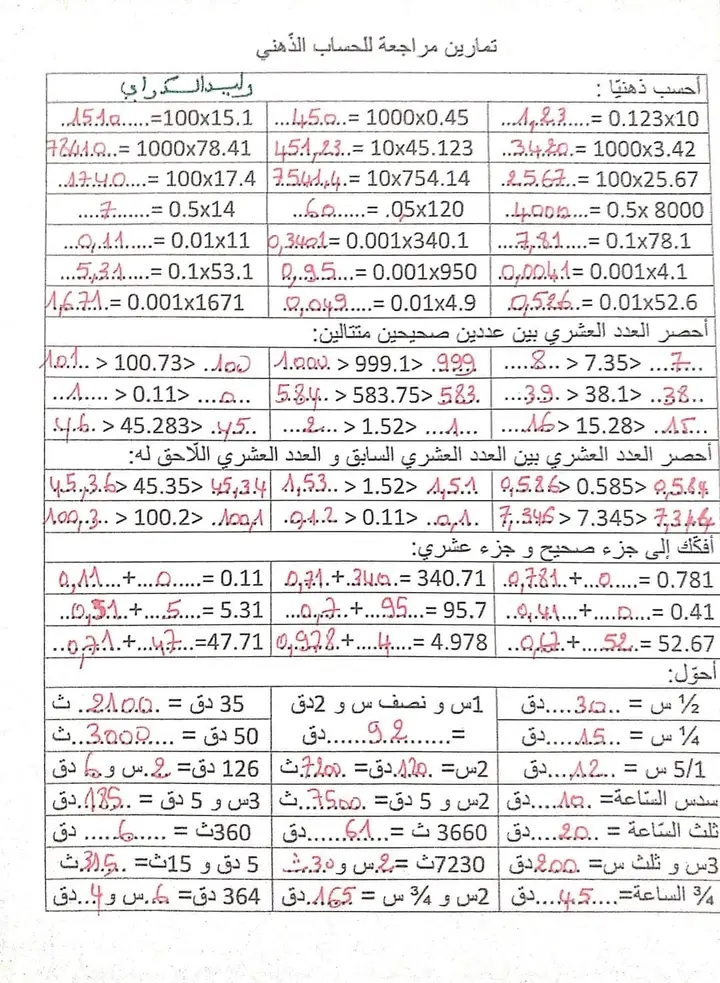 تمارين مراجعة للحساب الذّهني
أحسب ذهنيّا : وليد السكراي
...1,23....= 0.123x10 ...450..= 1000x0.45 ..1510.....=100x15.1
..3420..= 1000x3.42 451,23..= 10x45.123 78410..= 1000x78.41
..2567..= 100x25.67 7541,4.= 10x754.14 ..1740....= 100x17.4
..4000...= 0.5x 8000 ...60......= .05x120 ....7......= 0.5x14
...7,81....= 0.1x78.1 0,3401= 0.001x340.1 ...0,11.....= 0.01x11
.0,0041= 0.001x4.1 .0,95....= 0.001x950 ...5,31....= 0.1x53.1
.0,526.= 0.01x52.6 ..0,049....= 0.01x4.9 1,671.= 0.001x1671
أحصر العدد العشري بين عددين صحيحين متتالين:
.....8.. > 7.35> ...7.. 1.000. > 999.1> .999 101.. > 100.73> .100
...39. > 38.1> ..38.. 584. > 583.75> 583. ..1.... > 0.11> ...0..
....16> 15.28> .15.. ....2... > 1.52> ....1... 46. > 45.283> .45..
أحصر العدد العشري بين العدد العشري السابق و العدد العشري اللاّحق له:
0,586> 0.585> 0,584 1,53.. > 1.52> .1,51 45,36> 45.35> 45,34
7,346 > 7.345> 7,344 .0,12 > 0.11> ..0,1. 100,3.. > 100.2> .100,1
أفكّك إلى جزء صحيح و جزء عشري:
0,781.+...0.....= 0.781 .0,71.+.340.= 340.71 0,11...+...0.....= 0.11
..0,41...+....0...= 0.41 ...0,7..+...95...= 95.7 ..0,31.+...5....= 5.31
..0,67.+....52.= 52.67 0,978.+....4....= 4.978 ..0,71.+...47...=47.71
أحوّل:
½ س = ....30....دق 1س و نصف س و 2دق 35 دق = .2100.. ث
¼ س = .....15..دق =.......92......دق 50 دق = ..3000.... ث
5/1 س = ..12....دق 2س= .120.دق= .7200ث 126 دق= 2.س و 6 دق
سدس السّاعة= .10....دق 2س و 5 دق= .7500..ث 3س و 5 دق = ..185.دق
ثلث السّاعة = ..20....دق 3660 ث =....61.....دق 360ث = .....6..... دق
3س و ثلث س= .200.دق 7230ث =2.س و30.ث 5 دق و 15ث= .315.ث
¾ الساعة=....45....دق 2س و ¾ س = .165.دق 364 دق= 6.س و4..دق